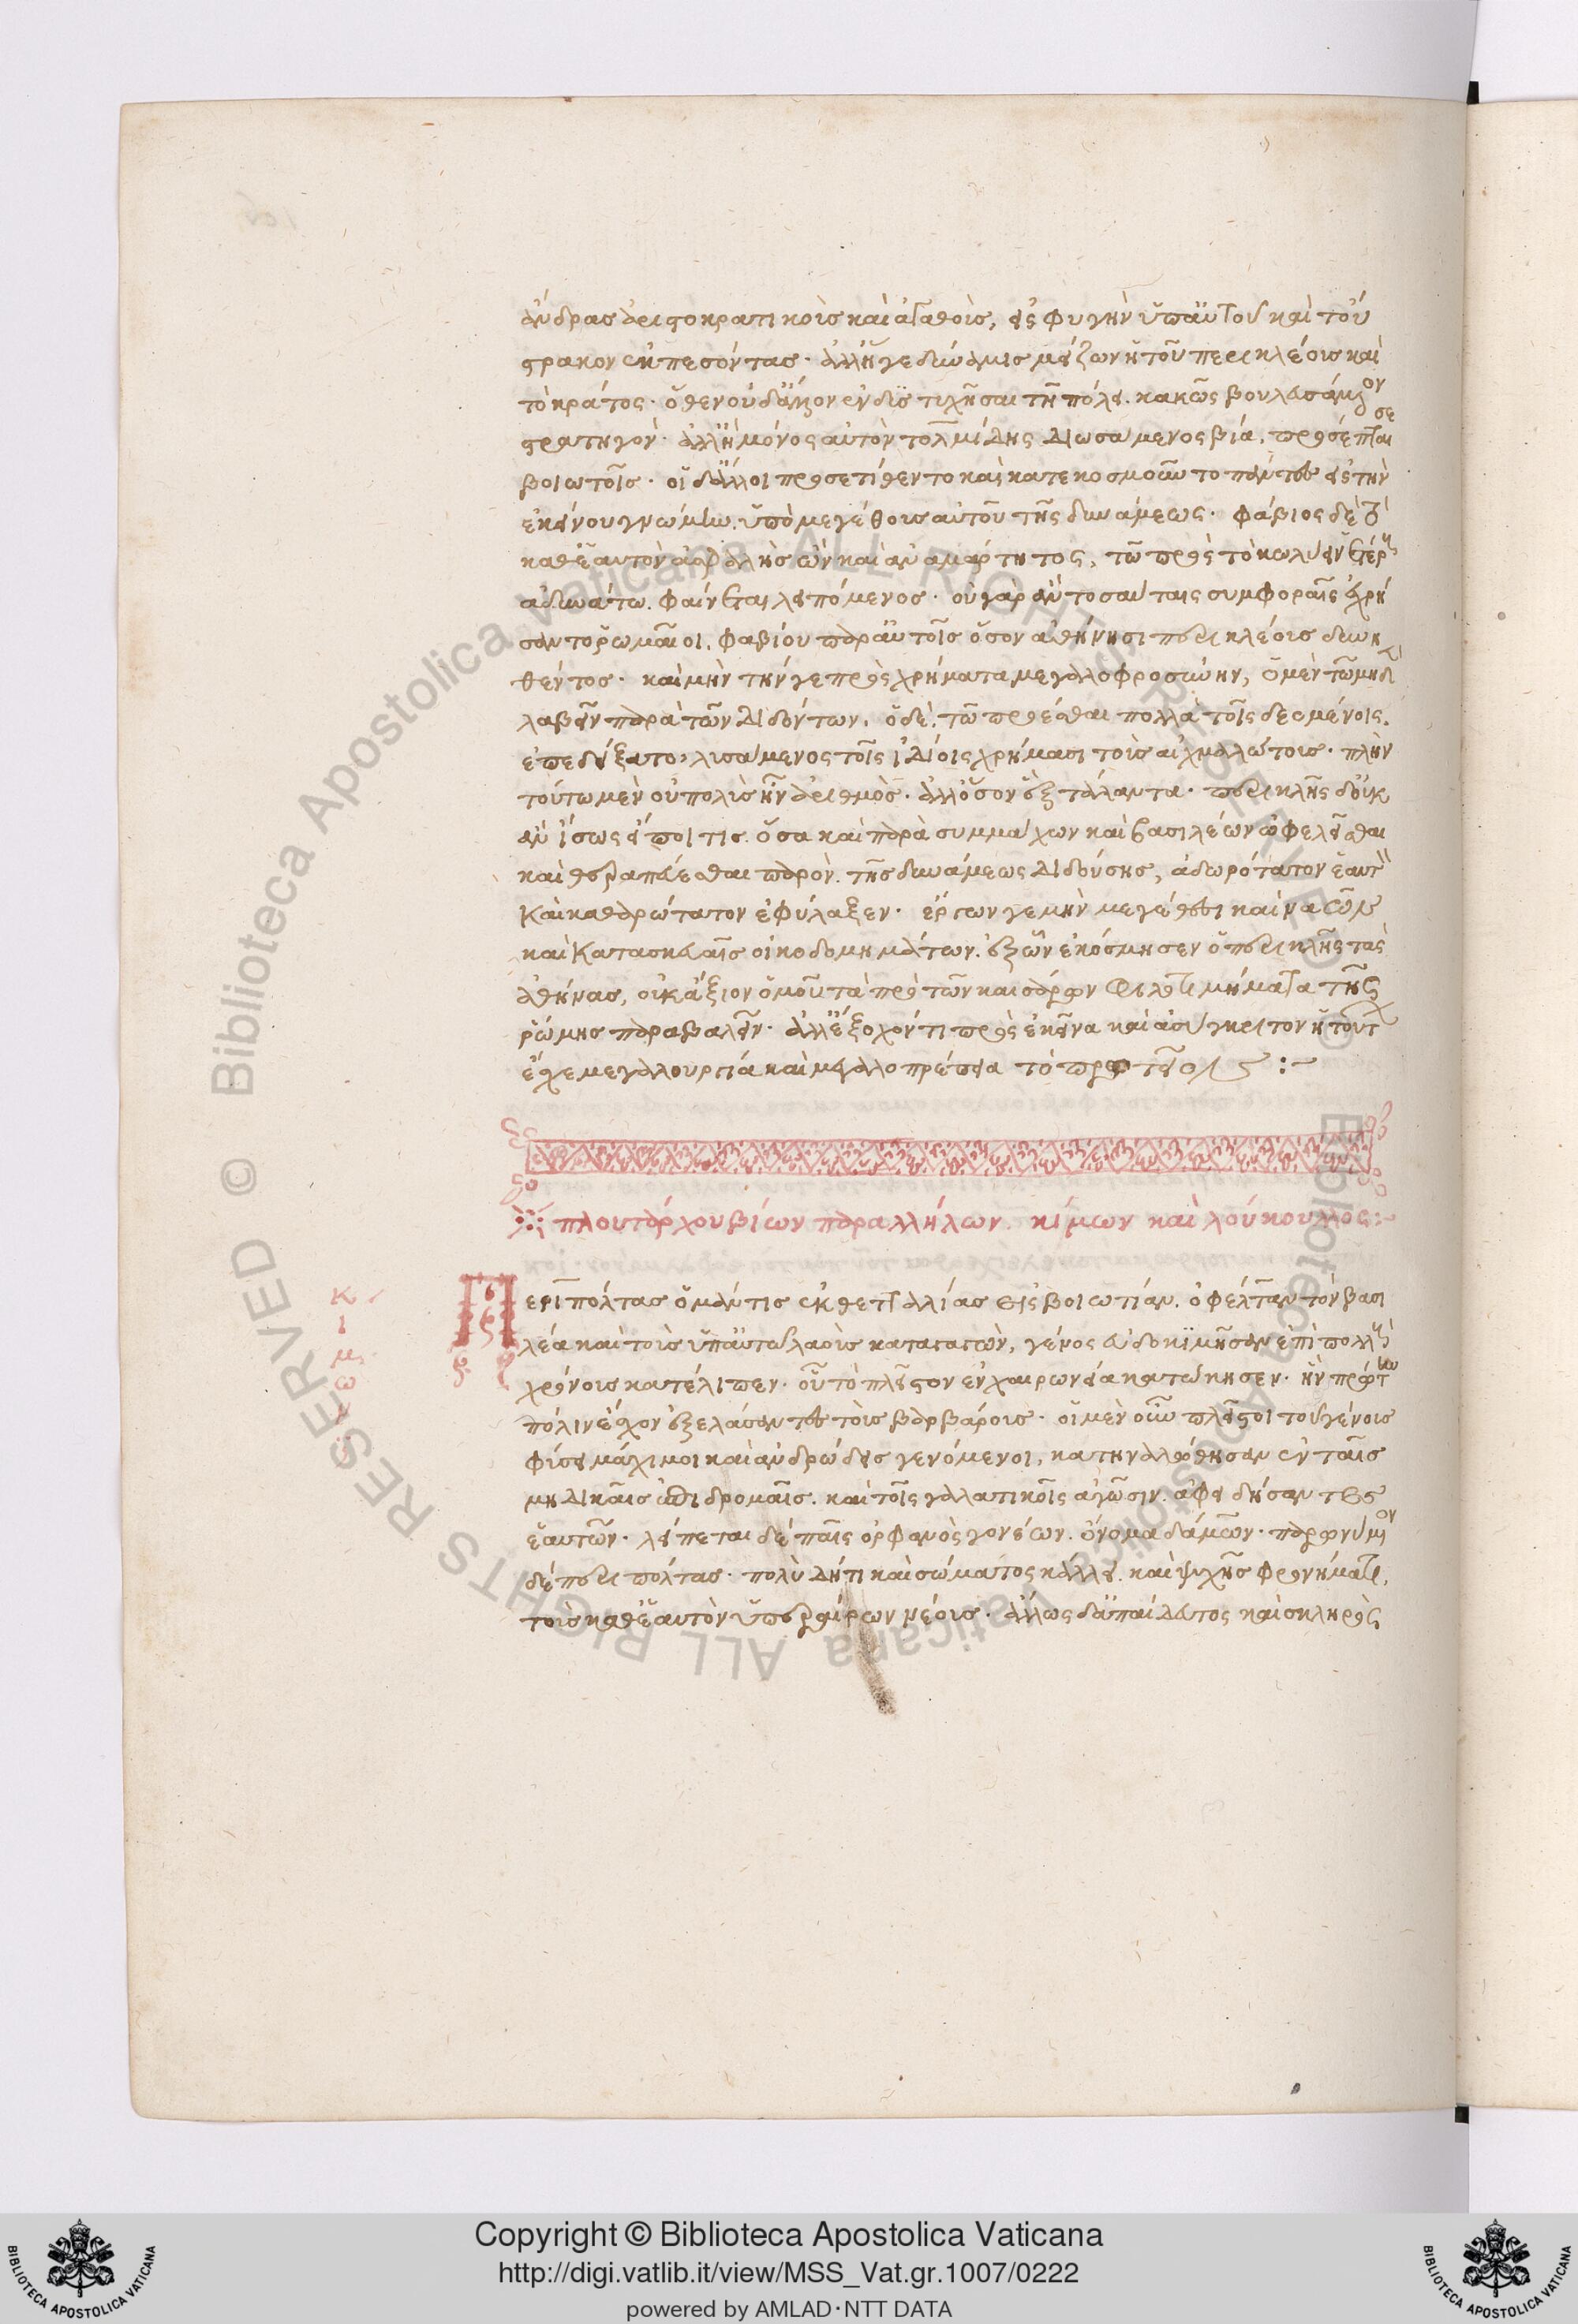 ἄνδρας ἀριστοκρατικοὺς καὶ ἀγαθοὺς, εἰς φυγὴν ὑπ' αὐτοῦ καὶ τοὔ
στρακον ἐκπεσόντας· ἀλλ' ἥ γε δύναμις μείζων ἢ τοῦ περικλέους καὶ
τὸ κράτος· ὅθεν οὐδ' ἄλλον ἐνδυστυχῆσαι τῇ πόλει κακῶς βουλευσάμενον
στρατηγόν· ἀλλ' ἢ μόνος αὐτὸν τολμίδης διωσάμενος βία, προσέπταισε
βοιωτοῖς· οἱ δ' ἄλλοι προσετίθεντο καὶ κατεκοσμοῦντο πάντες εἰς τὴν
ἐκείνου γνώμην ὑπὸ μεγέθους αὐτοῦ τῆς δυνάμεως· φάβιος δὲ τὸ
καθ' ἑαυτὸν ἀσφαλὴς ὢν καὶ ἀναμάρτητος, τῶ πρὸς τὸ κωλύειν ἑτέρους
ἀδυνάτω φαίνεται λειπόμενος· οὐ γὰρ ἂν τοσαύταις συμφοραῖς ἐχρή
σαντο ῥωμαῖοι, φαβίου παρ' αὐτοῖς ὅσον ἀθήνησι περικλέους δυνη
θέντος· καὶ μὴν τήν γε πρὸς χρήματα μεγαλοφροσύνην, ὁ μὲν τῶ μηδὲν
λαβεῖν παρὰ τῶν διδόντων, ὁ δὲ τῶ προέσθαι πολλὰ τοῖς δεομένοις
ἐπεδείξατο, λυσάμενος τοῖς ἰδίοις χρήμασι τοὺς αἰχμαλώτους· πλὴν
τούτω μὲν οὐ πολὺς ἦν ἀριθμός· ἀλλ' ὅσον ἓξ τάλαντα· περικλῆς δ' οὐκ
ἂν ἴσως εἴποι τις ὅσα καὶ παρὰ συμμάχων καὶ βασιλέων ὠφελεῖσθαι
καὶ θεραπεύεσθαι παρὸν τῆς δυνάμεως διδούσης, ἀδωρότατον ἑαυτὸν
καὶ καθαρώτατον ἐφύλαξεν· ἔργων γε μὴν μεγέθεσι καὶ ναῶν
καὶ κατασκευαῖς οἰκοδομημάτων ἐξ ὧν ἐκόσμησεν ὁ περικλῆς τὰς
ἀθήνας, οὐκ ἄξιον ὁμοῦ τὰ πρὸ τῶν καισάρων φιλοτιμήματα τῆς
ῥώμης παραβαλεῖν· ἀλλ' ἔξοχόν τι πρὸς ἐκεῖνα καὶ ἀσύγκριτον ἡ τούτων
ἔσχε μεγαλουργία καὶ μεγαλοπρέπεια τὸ πρωτεῖον :~
πλουτάρχου βίων παραλλήλων κίμων καὶ λούκουλλος:~
κίμων
Περιπόλτας ὁ μάντις ἐκ θετταλίας εἰς βοιωτίαν ὀφέλταν τὸν βασι
λέα καὶ τοὺς ὑπ' αὐτῶ λαοὺς καταγαγών, γένος εὐδοκιμῆσαν ἐπὶ πολλοὺς
χρόνους κατέλιπεν· οὗ τὸ πλεῖστον ἐν χαιρωνεία κατώκησεν· ἣν πρώτην
πόλιν ἔσχον ἐξελάσαντες τοὺς βαρβάρους· οἱ μὲν οὖν πλεῖστοι τοῦ γένους
φύσει μάχιμοι καὶ ἀνδρώδεις γενόμενοι, καταναλώθησαν ἐν ταῖς
μηδικαῖς ἐπιδρομαῖς καὶ τοῖς γαλατικοῖς ἀγῶσιν ἀφειδήσαντες
ἑαυτῶν· λείπεται δὲ παῖς ὀρφανὸς γονέων ὄνομα δάμων· παρωνύμιον
δὲ περιπόλτας· πολὺ δή τι καὶ σώματος κάλλει καὶ ψυχῆς φρονήματι,
τοὺς καθ' ἑαυτὸν ὑπεραίρων νέους· ἄλλως δ' ἀπαίδευτος καὶ σκληρὸς
Copyright © Biblioteca Apostolica Vaticana
http://digi.vatlib.it/view/MSS_Vat.gr.1007/0222
powered by AMLAD·NTT DATA